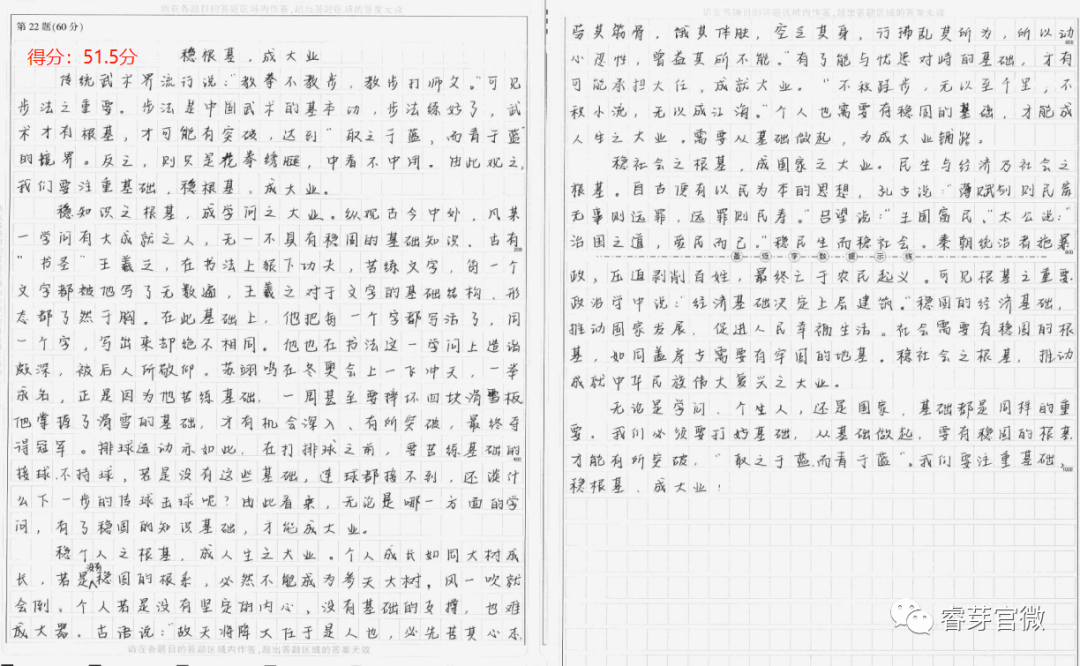 请在各题目的答题区域内作答,超出答题区域的答案无效
第 22 题(60 分)
得分：51.5分
稳根基，成大业
传统武术界流行说："教拳不教步，教步打师父。"可见
步法之重要。步法是中国武术的基本功，步法练好了，武
术才有根基，才可能有突破，达到"取之于蓝，而青于蓝"
的境界。反之，则只是花拳绣腿，中看不中用。由此观之，
我们要注重基础，稳根基，成大业。
稳知识之根基，成学问之大业。纵观古今中外，凡某
一学问有大成就之人，无一不具有稳固的基础知识。古有
"书圣"王羲之，在书法上狠下功夫，苦练文字，每一个
文字都被他写了无数遍，王羲之对于文字的基础结构、形
态都了然于胸。在此基础上，他把每一个字都写活了，同
一个字，写出来却绝不相同。他也在书法这一学问上造诣
颇深，被后人所敬仰。苏翊鸣在冬奥会上一飞冲天，一举
成名，正是因为他苦练基础，一周甚至要摔坏四块滑雪板
他掌握了滑雪的基础，才有机会深入、有所突破，最终夺
得冠军。排球运动亦如此，在打排球之前，要苦练基础的
接球、持球，若是没有这些基础，连球都接不到，还谈什
么下一步的传球击球呢？由此看来，无论是哪一方面的学
问，有了稳固的知识基础，才能成大业。
稳个人之根基，成人生之大业。个人成长如同大树成
长，若是没有稳固的根系，必然不能成为参天大树，风一吹就
会倒。个人若是没有坚定的内心，没有基础的支撑，也难
成大器。古语说："故天将降大任于是人也，必先苦其心志
请在各题目的答题区域内作答,超出答题区域的答案无效
请在各题目的答题区域内作答,超出答题区域的答案无效
劳其筋骨，饿其体肤，空乏其身，行拂乱其所为，所以动
心忍性，曾益其所不能。"有了能与忧患对峙的基础，才有
可能承担大任，成就大业。"不积跬步，无以至千里，不
积小流，无以成江海。"个人也需要有稳固的基础，才能成
人生之大业。需要从基础做起，为成大业铺路。
稳社会之根基，成国家之大业。民生与经济乃社会之
根基。自古便有以民为本的思想，孔子说："薄赋敛则民富
无事则远罪，远罪则民寿。"吕望说："王国富民、"太公说："
治国之道，爱民而已。"稳民生而稳社会。秦朝统治者施暴
最低字数提示线
政，压迫剥削百姓，最终亡于农民起义。可见根基之重要
政治学中说："经济基础决定上层建筑。"稳固的经济基础，
推动国家发展，促进人民幸福生活。社会需要有稳固的根
基，如同盖房子需要有牢固的地基。稳社会之根基，推动
成就中华民族伟大复兴之大业。
无论是学问、个生人，还是国家，基础都是同样的重
要。我们必须要打好基础，从基础做起，要有稳固的根基
才能有所突破，"取之于蓝，而青于蓝"。我们要注重基础，
稳根基，成大业！
睿芽官微